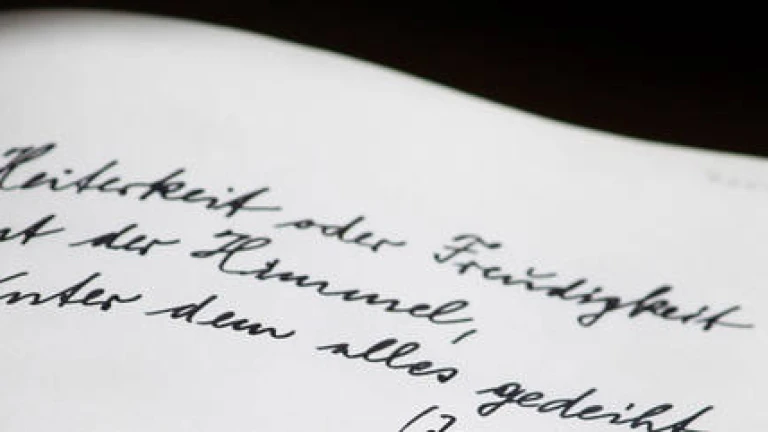 Heiterkeit oder Freudigkeit
ist der Himmel,
unter dem alles gedeiht